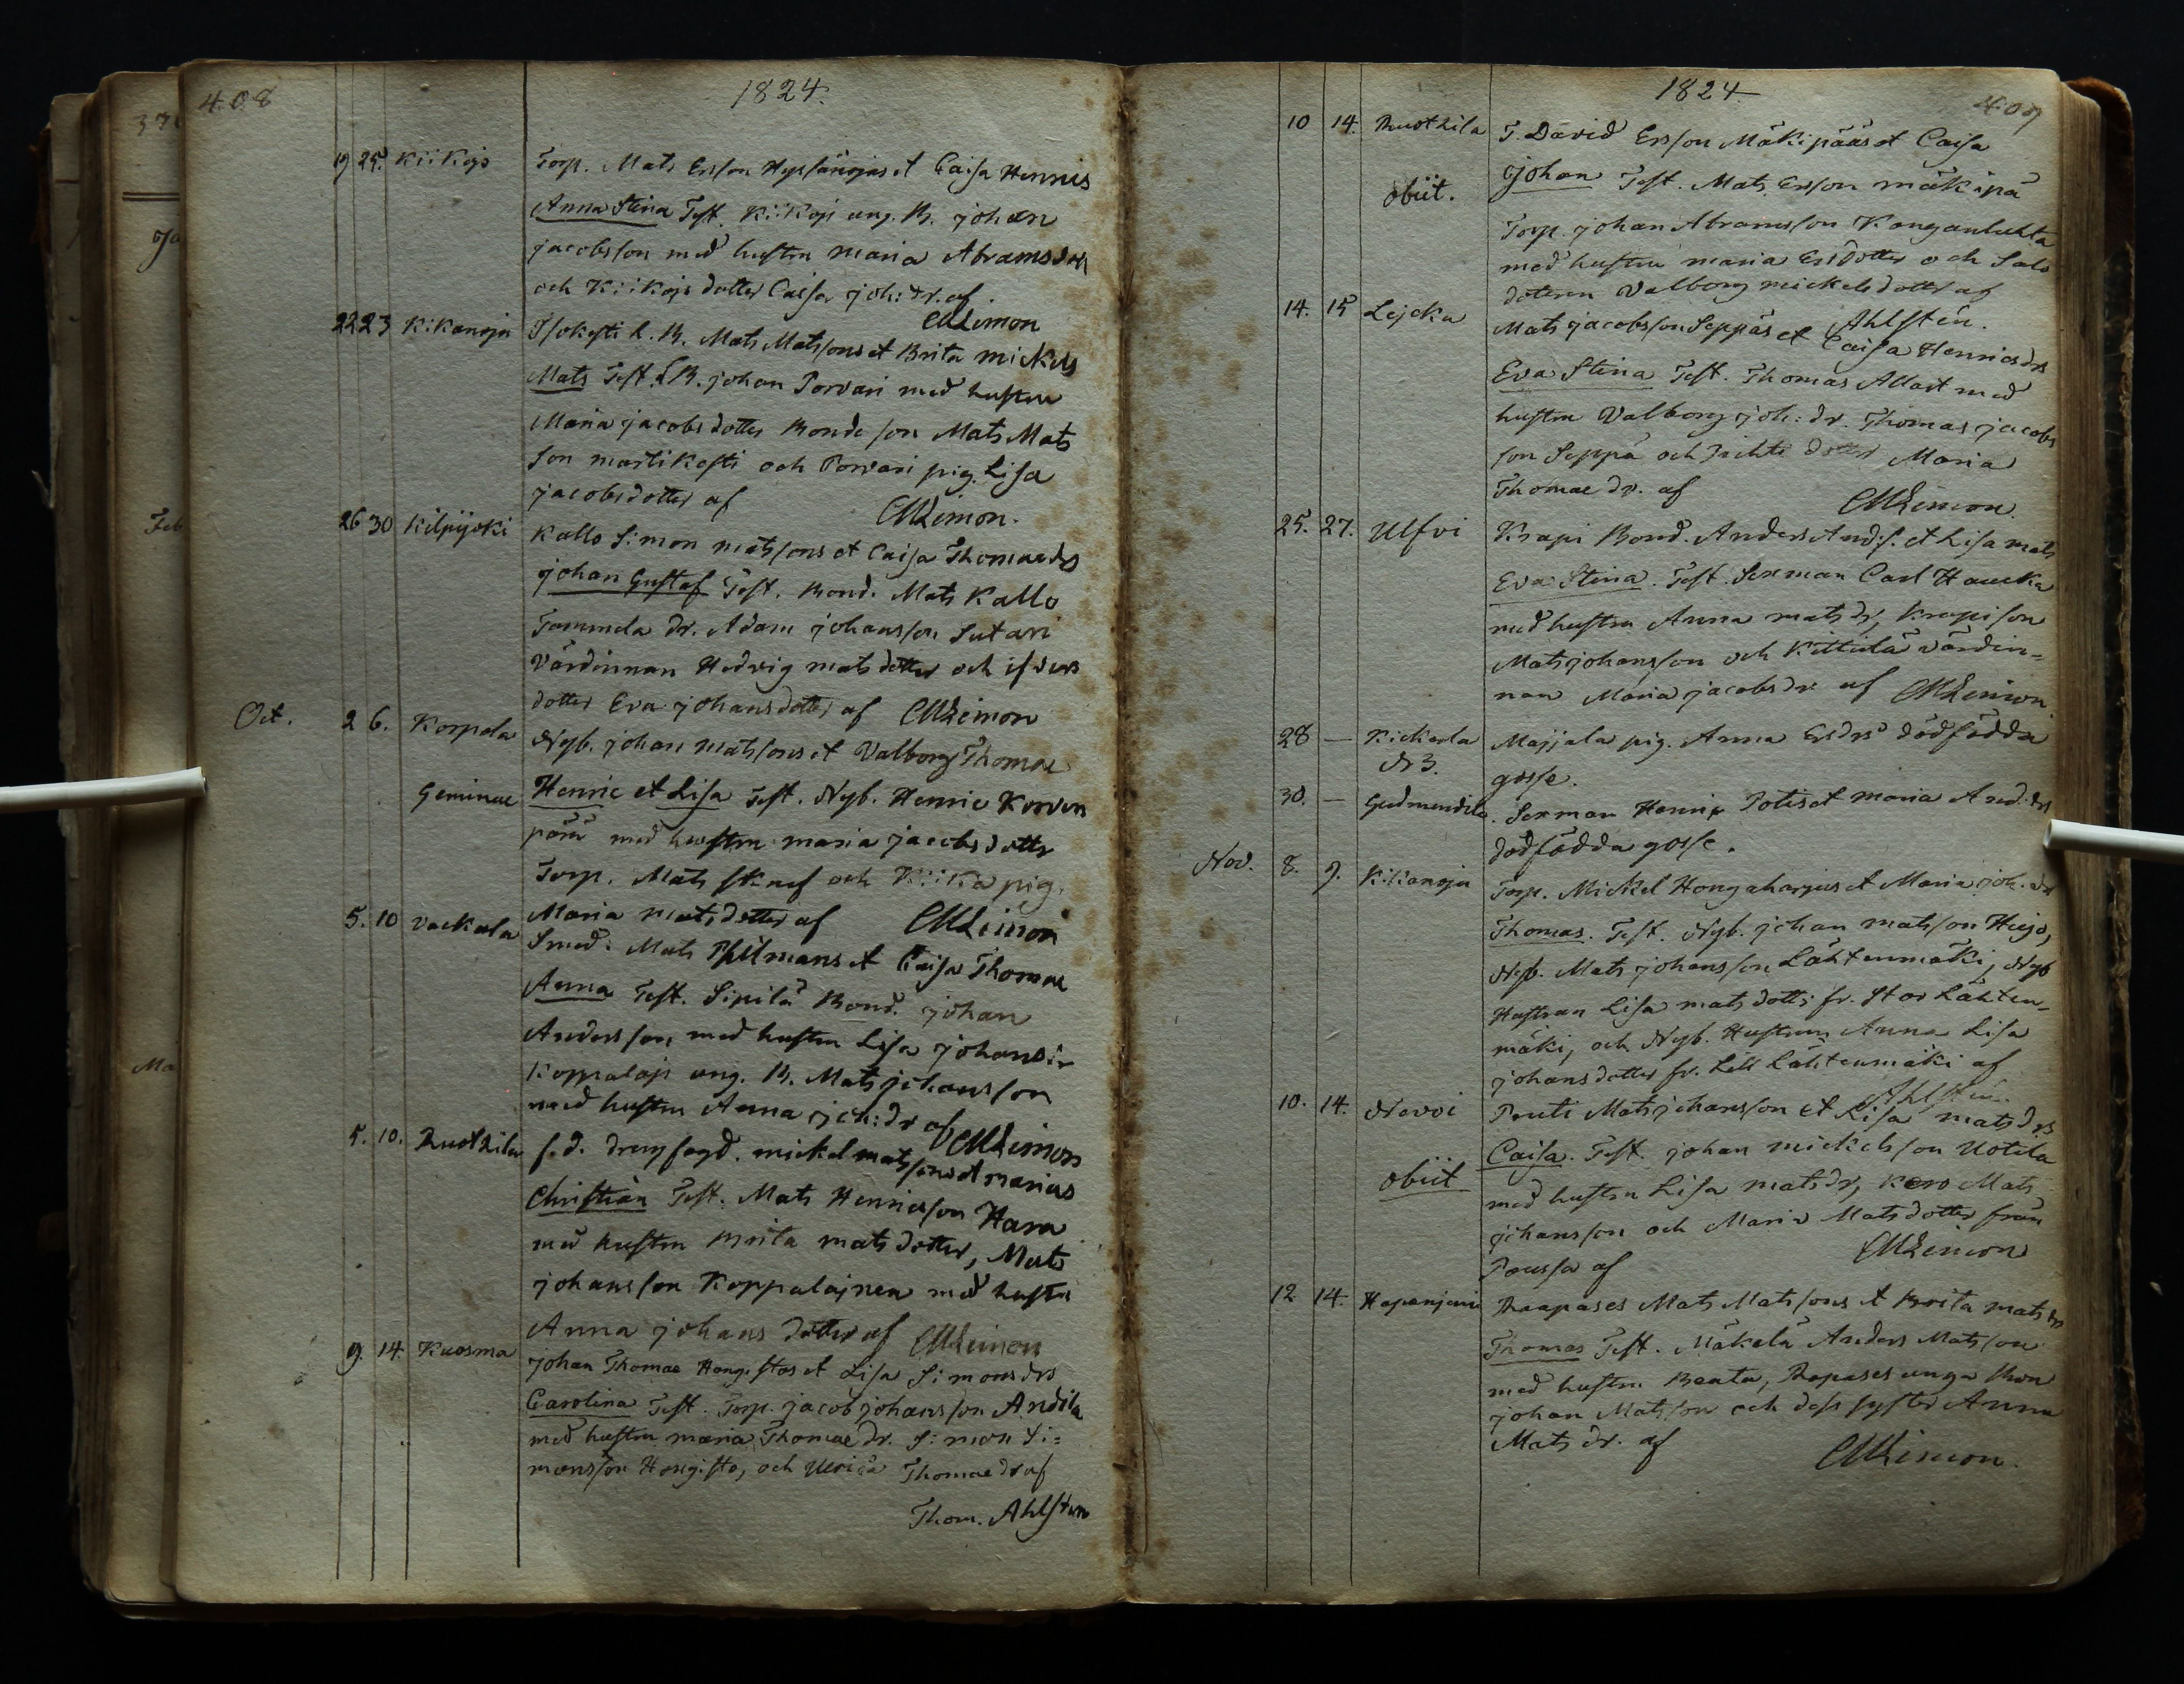 408
1824.
19 25. Kiikojs Torp. Mats Ersson Hyssänojas et Caisa Henrics
Anna Stina Test. Kiikojs ung. B. johan
jacobsson med hustru maria Abramsdr
och Kiikojs dotter Caisa joh: dr. af
CMLimon
22 23 Kikanoja Isokesti l. B. Mats Matssons et Brita mickels
Mats Test. LB. johan Porvari med hustru
Maria jacobsdotter Bonde son Mats Mats
son martikesti och Porvari pig. Lisa
jacobsdotter af CMLimon.
26 30 Kilpijoki Kallo Simon matssons et Caisa Thomaedrs
johan Gustaf Test. Bond. Mats Kallo
Tammela dr. Adam johansson Sutari
Värdinnan Hedvig matsdotter och
dotter Eva johansdotter af CMLimon
Oct. 2 6. Korpela Nyb. johan matssons et Valborg Thomae
Geminae Henric et Lisa Test. Nyb. Henric Korven
pää med hustru maria jacobsdotter
Torp. Mats och Kiika pig.
Maria matsdotter af CMLimon
5. 10 Vackala Smed. Mats Philmans et Caisa Thomae
Anna Test. Sipilä Bond. johan
Andersson, med hustru Lisa johansdr
Koppalajs ung. B. Mats johansson
med hustru Anna joh: dr af CMLimon
5. 10. Ruothila f. d. drengfogd. mickel matssons et marias
Christian Test. Mats Henricsson Hara
med hustru Brita matsdotter, Mats
johansson Koppalajnen med hustru
Anna johans dotter af CMLimon
9. 14. Kuosma johan Thomae Hongistos et Lisa Simonsdrs
Carolina Test. Torp. jacob johansson Andila
med hustru maria Thomae dr. Simon Si=
monsson Hongisto, och Ulrica Thomae dr af
Thom. Ahlsten
1824
409
10 14. Ruothila T. David Ersson Mäkipääs et Caisa
obiit. johan Test. Mats Ersson mäkipä
Torp. johan Abramsson Kanganluhta
med hustru maria Ersdotter och Salo
doteren Valborg mickelsdotter af
Ahlsten.
14. 15 Lejcku Mats jacobsson Seppäs et Caisa Henricsdrs
Eva Stina Test. Thomas Allast med
hustru Valborg joh: dr. Thomas jacobs
son Seppä och dotter Maria
Thomae dr. af CMLimon.
25. 27. Ulfvi Krapi Bond. Anders And:s. et Lisa mats
Eva Stina. Test. Sexman Carl Haucka
med hustru Anna matsdr, Krapi son
Mats johansson och Kittilä värdin=
nan Maria jacobsdr af CMLimon.
28 — Kickerla N 3. Majjala pig. Anna Ersdrs dödfödda
gosse.
30. — Gudmundila. Sexman Henric Potis et maria And. drs
dödfödda gosse.
Nov. 8. 9. Kikanoja Torp. Mickel Hongaharjus et Maria joh. drs
Thomas. Test. Nyb. johan matsson Hujo,
Nyb. Mats johansson Lähtenmäki, Nyb
Hustrun Lisa matsdotter fr. Stor Lähten=
mäki, och Nyb. Hustrun Anna Lisa
johansdotter fr. Lill Lähtenmäki af
Ahlsten.
10. 14. Nevoi Penti Mats johansson et Lisa matsdrs
obiit Caisa. Test. johan mickelsson Uotila
med hustru Lisa matsdr, Kero Mats
johansson och Maria Matsdotter från
Poussa af CMLimon
12 14. Haparjoni Raapases Mats Matssons et Brita matsdrs
Thomas Test. Mäkelä Anders Matsson
med hustru Beata, Rapases unga Bon
johan Matsson och dess syster Anna
Mats dr. af CMLimon.